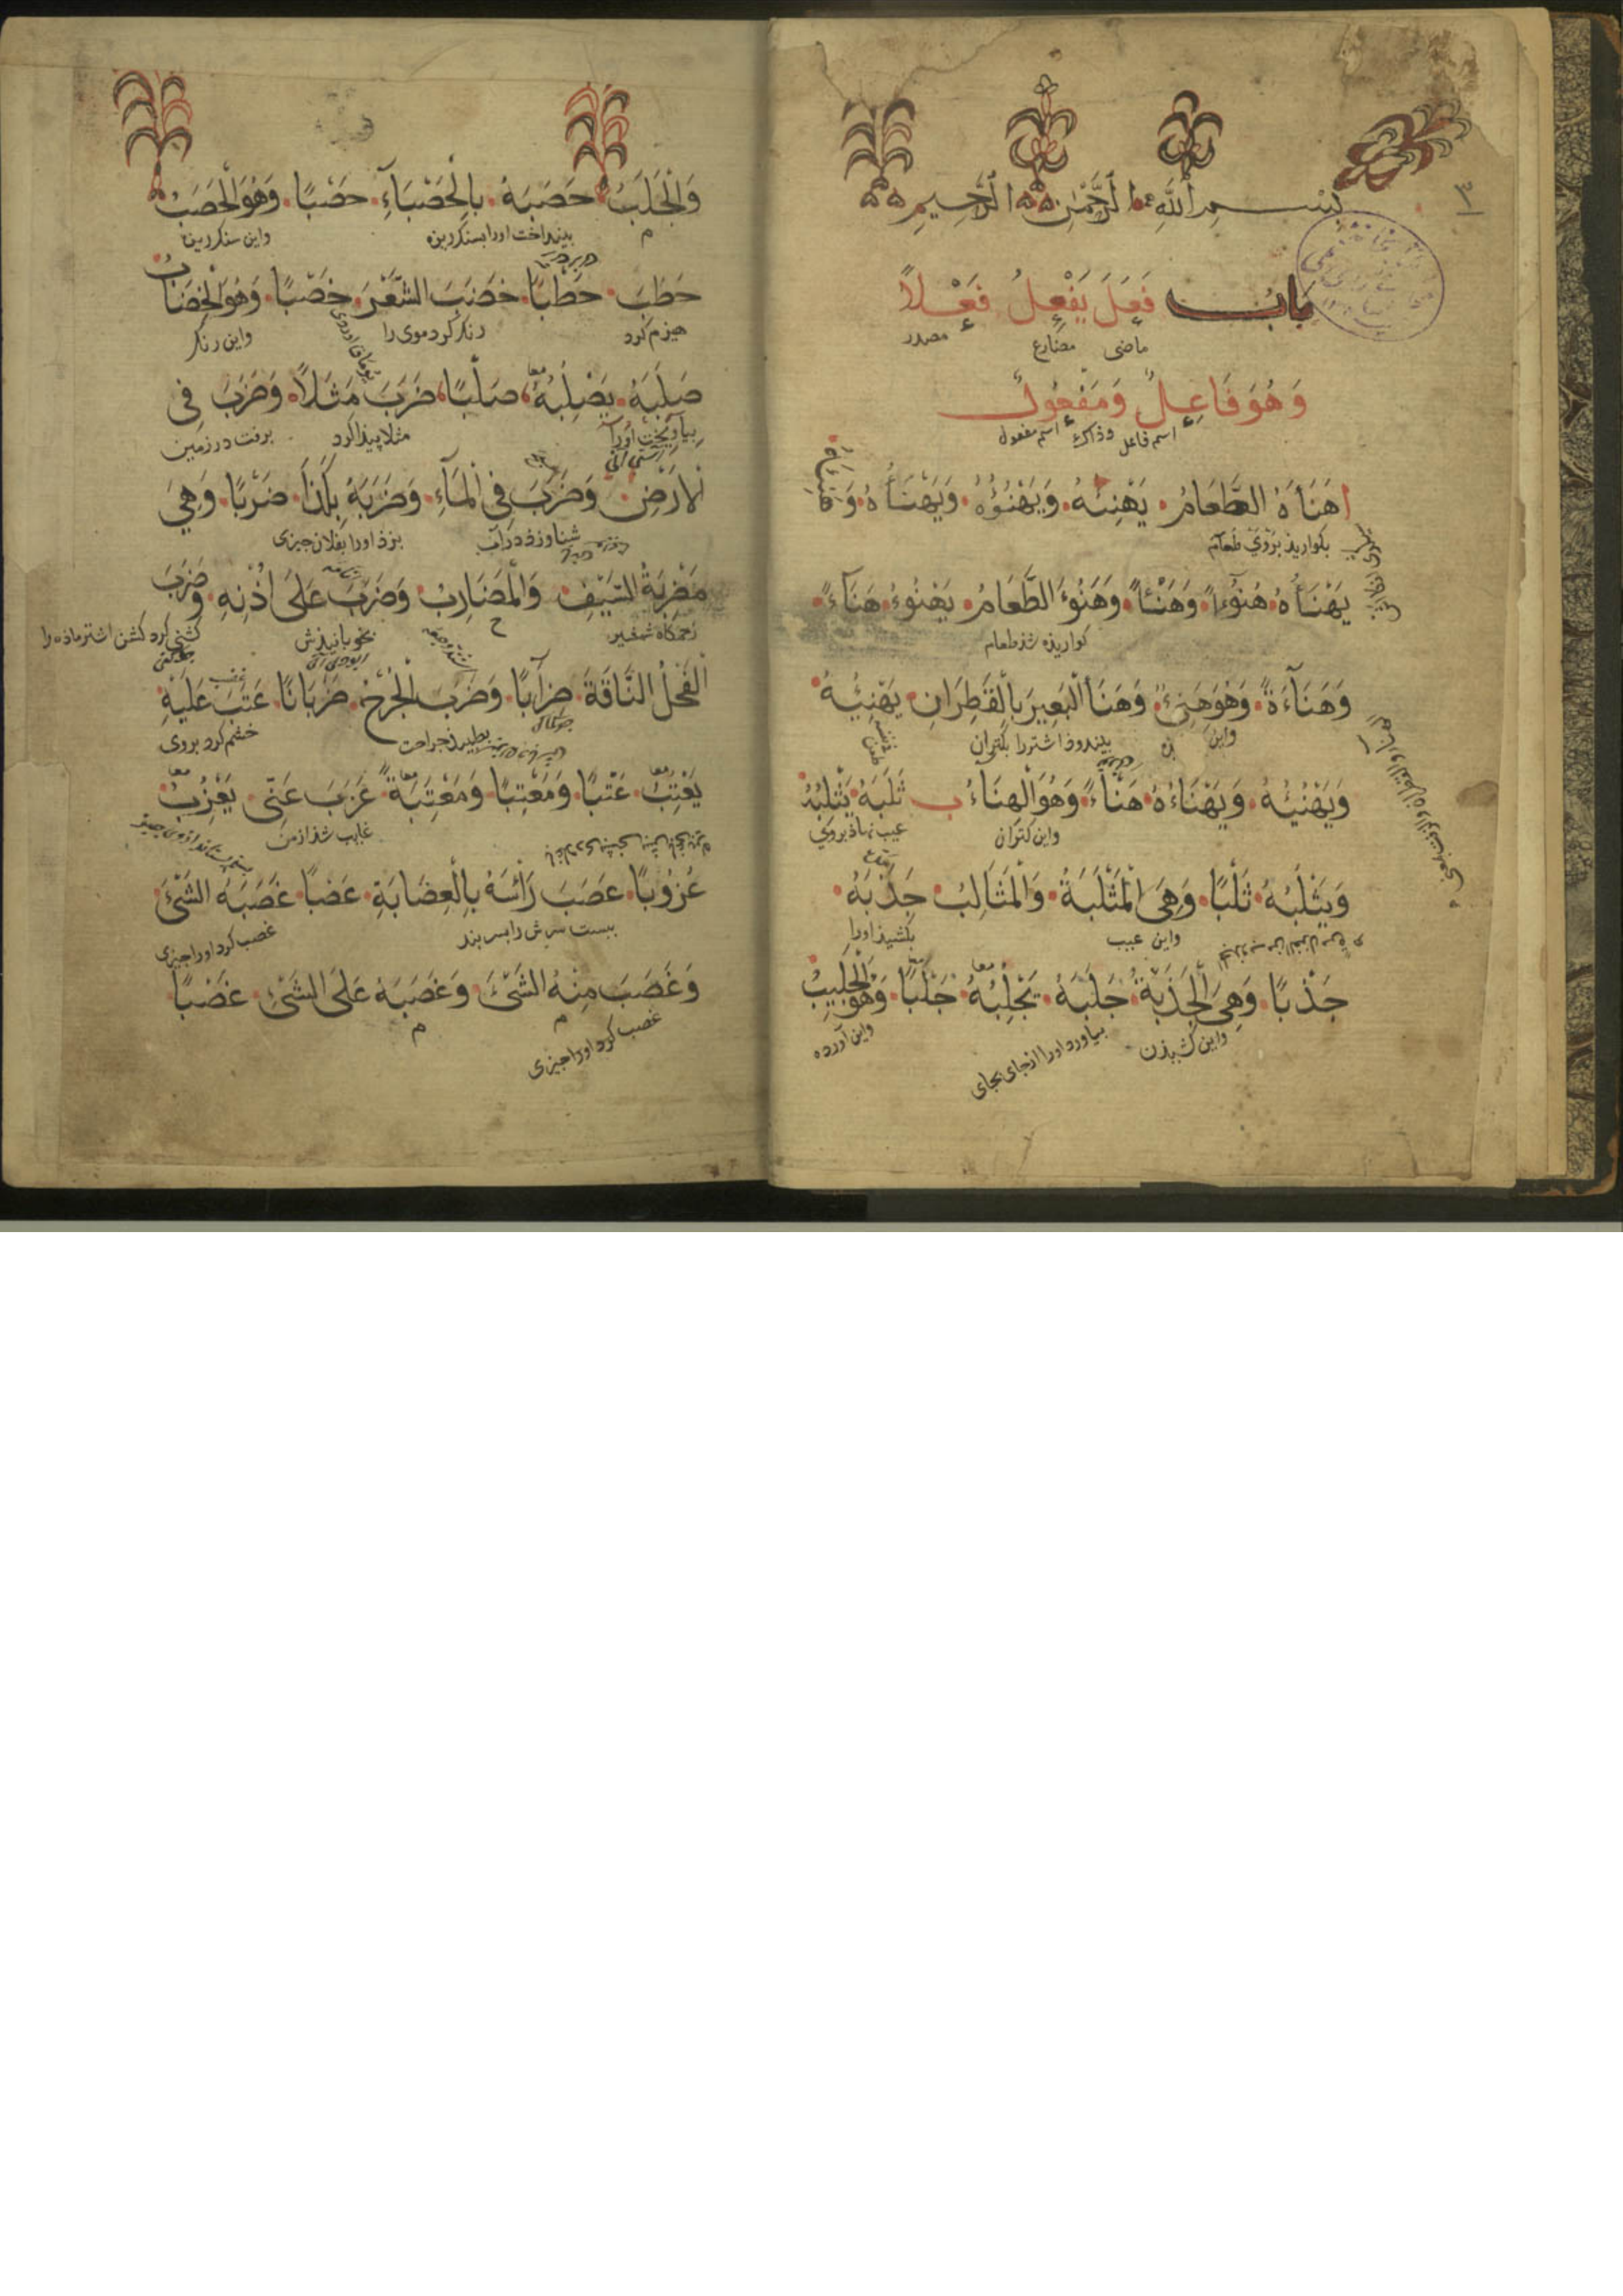 بِسْمِ اللّٰهِ الرَّحْمٰنِ الرَّحِيمِ
بَابُ فَعَلَ يَفْعِلُ فَعْلًا
ماضی مضارع مصدر
وَهُوَ فَاعِلٌ وَمَفْعُولٌ
اسم فاعل وذاک اسم مفعول
هَنَأَهُ الطَّعَامُ يَهْنِئُهُ وَيَهْنُؤُهُ وَيَهْنَأُهُ وَ
بکوارید بروی طعام
يَهْنَأُهُ هُنُؤًا وَهَنْئًا وَهَنُوَ الطَّعَامُ يَهْنُوءُ هَنَآءً
کوارنده شد طعام
وَهَنَآءَةً وَهُوَ هَنِيءٌ وَهَنَأَ الْبَعِيرَ بِالْقَطِرَانِ يَهْنِيُهُ
واین بیندوذ اشتر را بکتران
وَيَهْنُيُهُ وَيَهْنَاءُهُ هَنْأً وَهُوَ الْهِنَاءُ ب ثَلَبَهُ يَثْلِبُهُ
واین کتران عیب نهاذ بروی
وَيَثْلَبُهُ ثَلْبًا وَهِيَ الْمَثْلَبَةُ وَالْمَثَالِبُ جَذَبَهُ
واین عیب بکشیذ اورا
جَذْبًا وَهِيَ الْجَذْبَةُ جَلَبَهُ يَجْلِبُهُ جَلْبًا وَهُوَ الْجَلِيبُ
واین کشیذن بیاورد اورا از جای بجای واین آورده
وَالْجَلَبُ حَصَبَهُ بِالْحَصْبَآءِ حَصْبًا وَهُوَ الْحَصَبُ
م بینداخت اورا بسنکریزه واین سنکریزه
حَطَبَ حَطْبًا خَضَبَ الشَّعْرَ خَضْبًا وَهُوَ الْخِضَابُ
هیزم کرد رنک کرد موی را واین رنک
صَلَبَهُ يَصْلِبُهُ صَلْبًا ضَرَبَ مَثَلًا وَضَرَبَ فِي
بیاویخت اورا مثلا پیذا کرد برفت در زمین
الْأَرْضِ وَضَرَبَ فِي الْمَآءِ وَضَرَبَهُ بِكَذَا ضَرْبًا وَهِيَ
شناو زذ در آب بزذ اورا بفلان چیزی
مَضْرِبَةُ السَّيْفِ وَالْمَضَارِبُ وَضَرَبَ عَلَى أُذْنِهِ وَضَرَبَ
زخمکاه شمشیر ح بخوبانیذش کشنی کرد کشن اشتر ماذه را
الْفَحْلُ النَّاقَةَ ضِرَابًا وَضَرَبَ الْجُرْحُ ضَرَبَانًا عَتَبَ عَلَيْهِ
بطپید جراحت خشم کرد بروی
يَعْتِبُ عَتْبًا وَمَعْتَبًا وَمَعْتِبَةً عَزَبَ عَنِّي يَعْزُبُ
غایب شذ از من
عُزُوبًا عَصَبَ رَأْسَهُ بِالْعِصَابَةِ عَصْبًا غَصَبَهُ الشَّيْءَ
ببست سرش را بسربند غصب کرد اورا چیزی
وَغَصَبَ مِنْهُ الشَّيْءَ وَغَصَبَهُ عَلَى الشَّيْءِ غَصْبًا
غصب کرد اورا چیزی م م